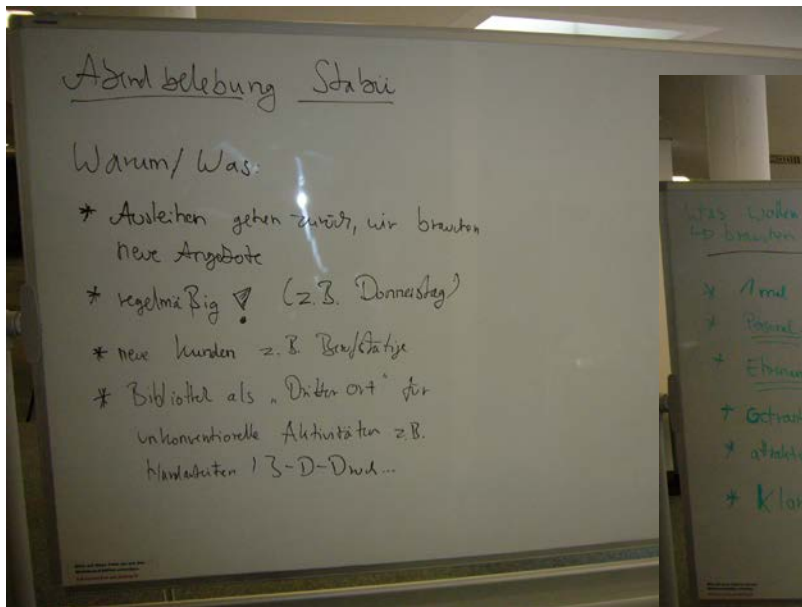 Abendbelebung Stabü
Warum/Was:
* Ausleihen gehen zurück, wir brauchen
neue Angebote
* regelmäßig ! (z.B. Donnerstag)
* neue Kunden z.B. Berufstätige
* Bibliothek als „Dritter Ort" für
unkonventionelle Aktivitäten z.B.
Handarbeiten / 3-D-Druck...
Was wollen
↳ brauchen
* 1 mal
* Personal
* Ehrenam
* Geträn
* attrakti
* Klar